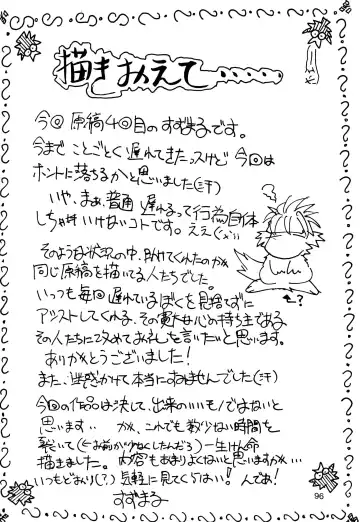 描きおえて・・・・・
今回 原稿4回目のすずまるです。
今まで ことごとく遅れてきたっスけど 今回は
ホントに落ちるかと思いました(汗)
いや、まぁ、普通 遅れるって行為自体
しちゃぁいけないコトです。ええ
そのような状況の中、助けてくれたのが
同じ原稿を描いてる人たちでした。
いっつも毎回遅れているぼくを見捨てずに
アシストしてくれる、その寛大な心の持ち主である
その人たちに改めてお礼を言いたいと思います。
ありがとうございました!
また、迷惑かけて本当にすみませんでした(汗)
今回の作品は決して、出来のいいモノではないと
思います が、これでも数少ない時間を
裂いて(←お前が少なくしたんだろ)一生けん命
描きました。内容もあまりよくないと思いますがヘ…
いつもどおり(?)気軽に見てくらはい! んでわ!
すずまる
←?
96